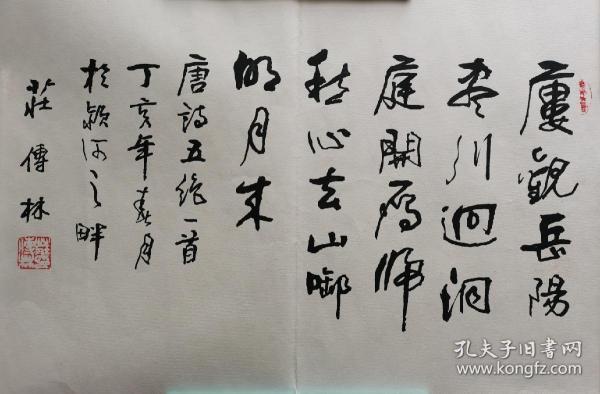 廔觀岳陽
盡川迥洞
庭開雁帰
愁心去山啣
明月来
唐詩五絶一首
丁亥年春月
於潁河之畔
莊傳林
孔夫子旧書网
www.kongfz.com